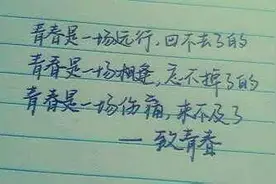 青春是一场远行，回不去了的
青春是一场相逢，忘不掉了的
青春是一场伤痛，来不及了
——致青春